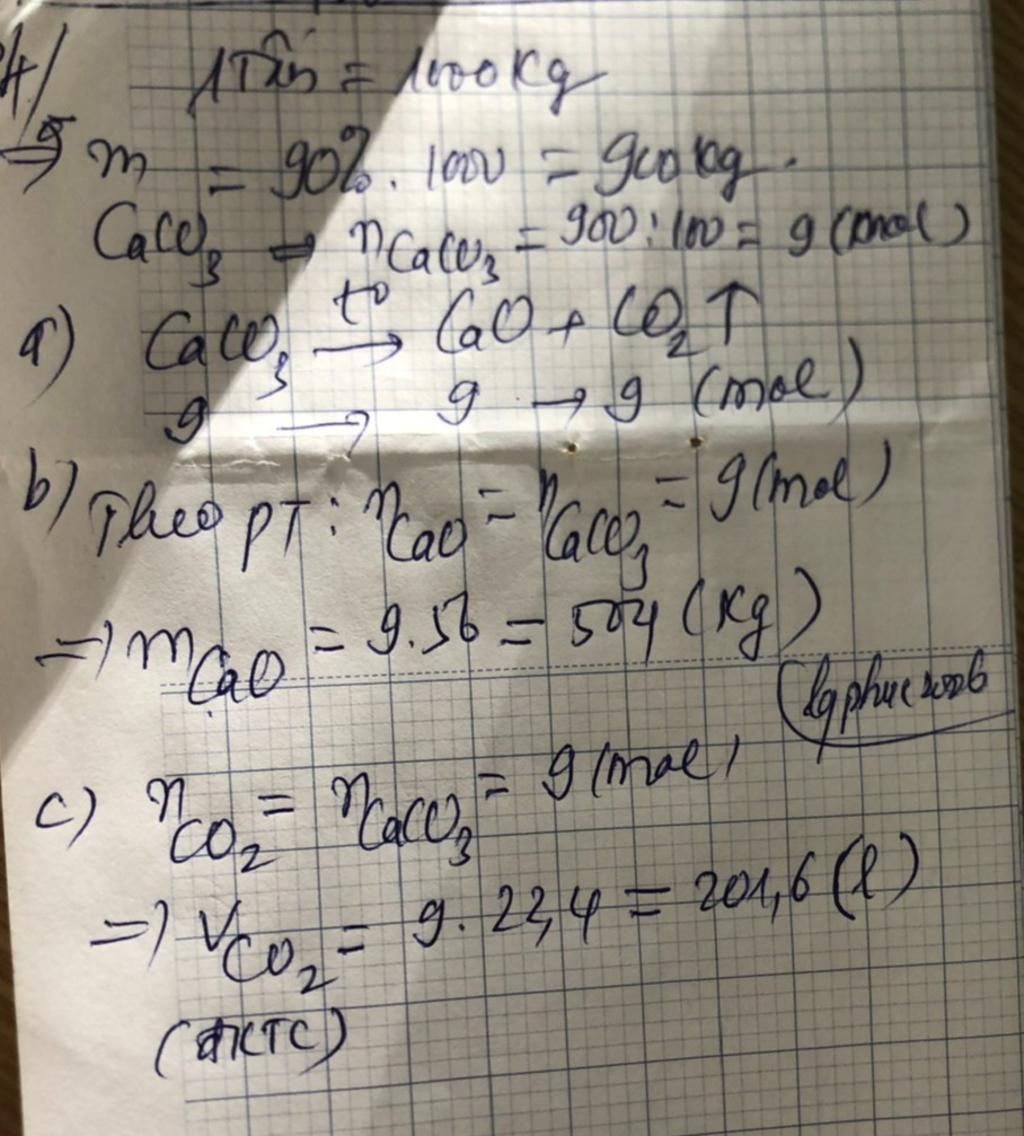 4/ 1 Tấn = 1000 Kg
=> m CaCO3 = 90%. 1000 = 900 kg.
→ nCaCO3 = 900 : 100 = 9 (mol)
a) CaCO3 t° → CaO + CO2 ↑
9 → 9 → 9 (mol)
b) Theo PT : nCaO = nCaCO3 = 9 (mol)
=> mCaO = 9.56 = 504 (Kg)
lgphuc2006
c) nCO2 = nCaCO3 = 9 (mol)
=> VCO2 = 9. 22,4 = 201,6 (l)
(đKTC)